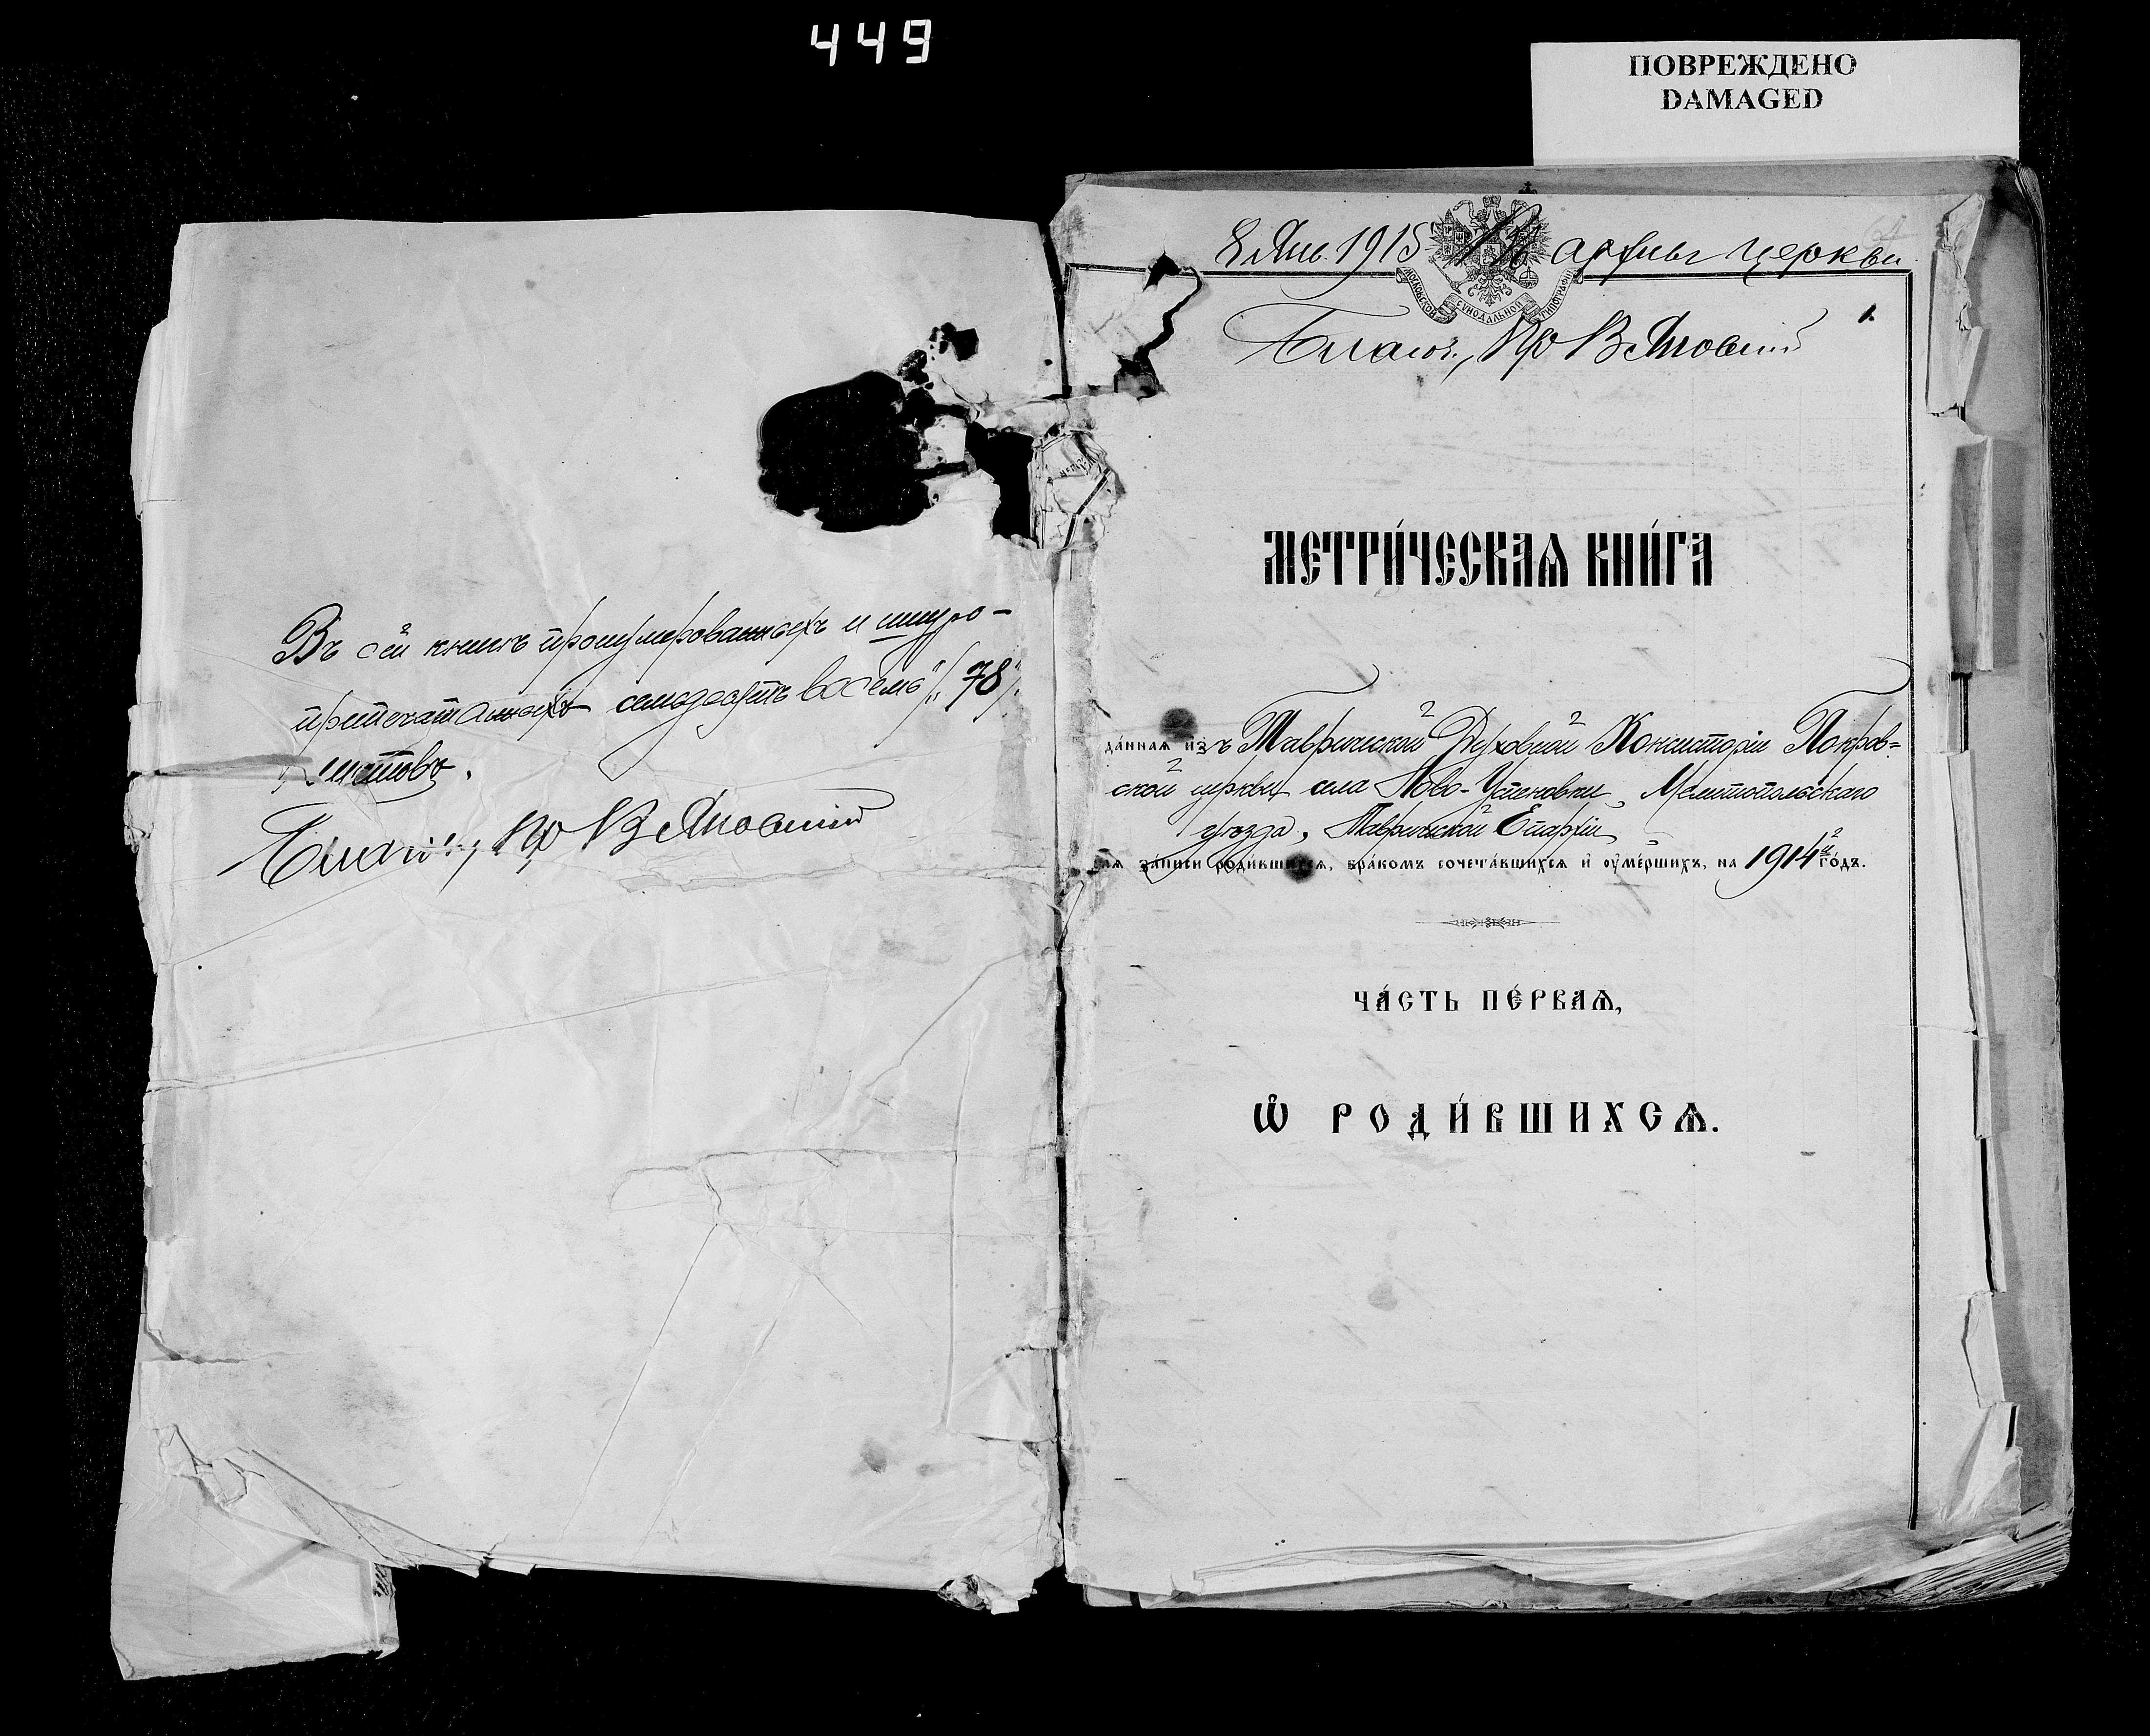 449
ПОВРЕЖДЕНО
DAMAGED
Въ сей книгѣ пронумерованныхъ и шнуро-
припечатанныхъ семьдесятъ восемь /"78"/.
листовъ.
Благоч., Пр В Яновскій
8 Янв. 1915 Въ архивъ церкви
МОСКОВСКОЙ СѴНОДАЛЬНОЙ ТИПОГРАФІИ
Благоч., Пр В Яновскій
1.
МЕТРИ́ЧЕСКАѦ КНИ́ГА
да́ннаѧ изъ Таврической Духовной Консисторіи Покров=
ской церкви села Ново-Успеновки, Мелитопольскаго
уѣзда, Таврической Епархіи
для за́писи роди́вшихсѧ, бра́комъ сочета́вшихсѧ и҆ ѹ҆ме́ршихъ, на 1914й го́дъ.
ЧА́СТЬ ПЕ́РВАѦ,
Ѡ҆ РОДИ́ВШИХСѦ.